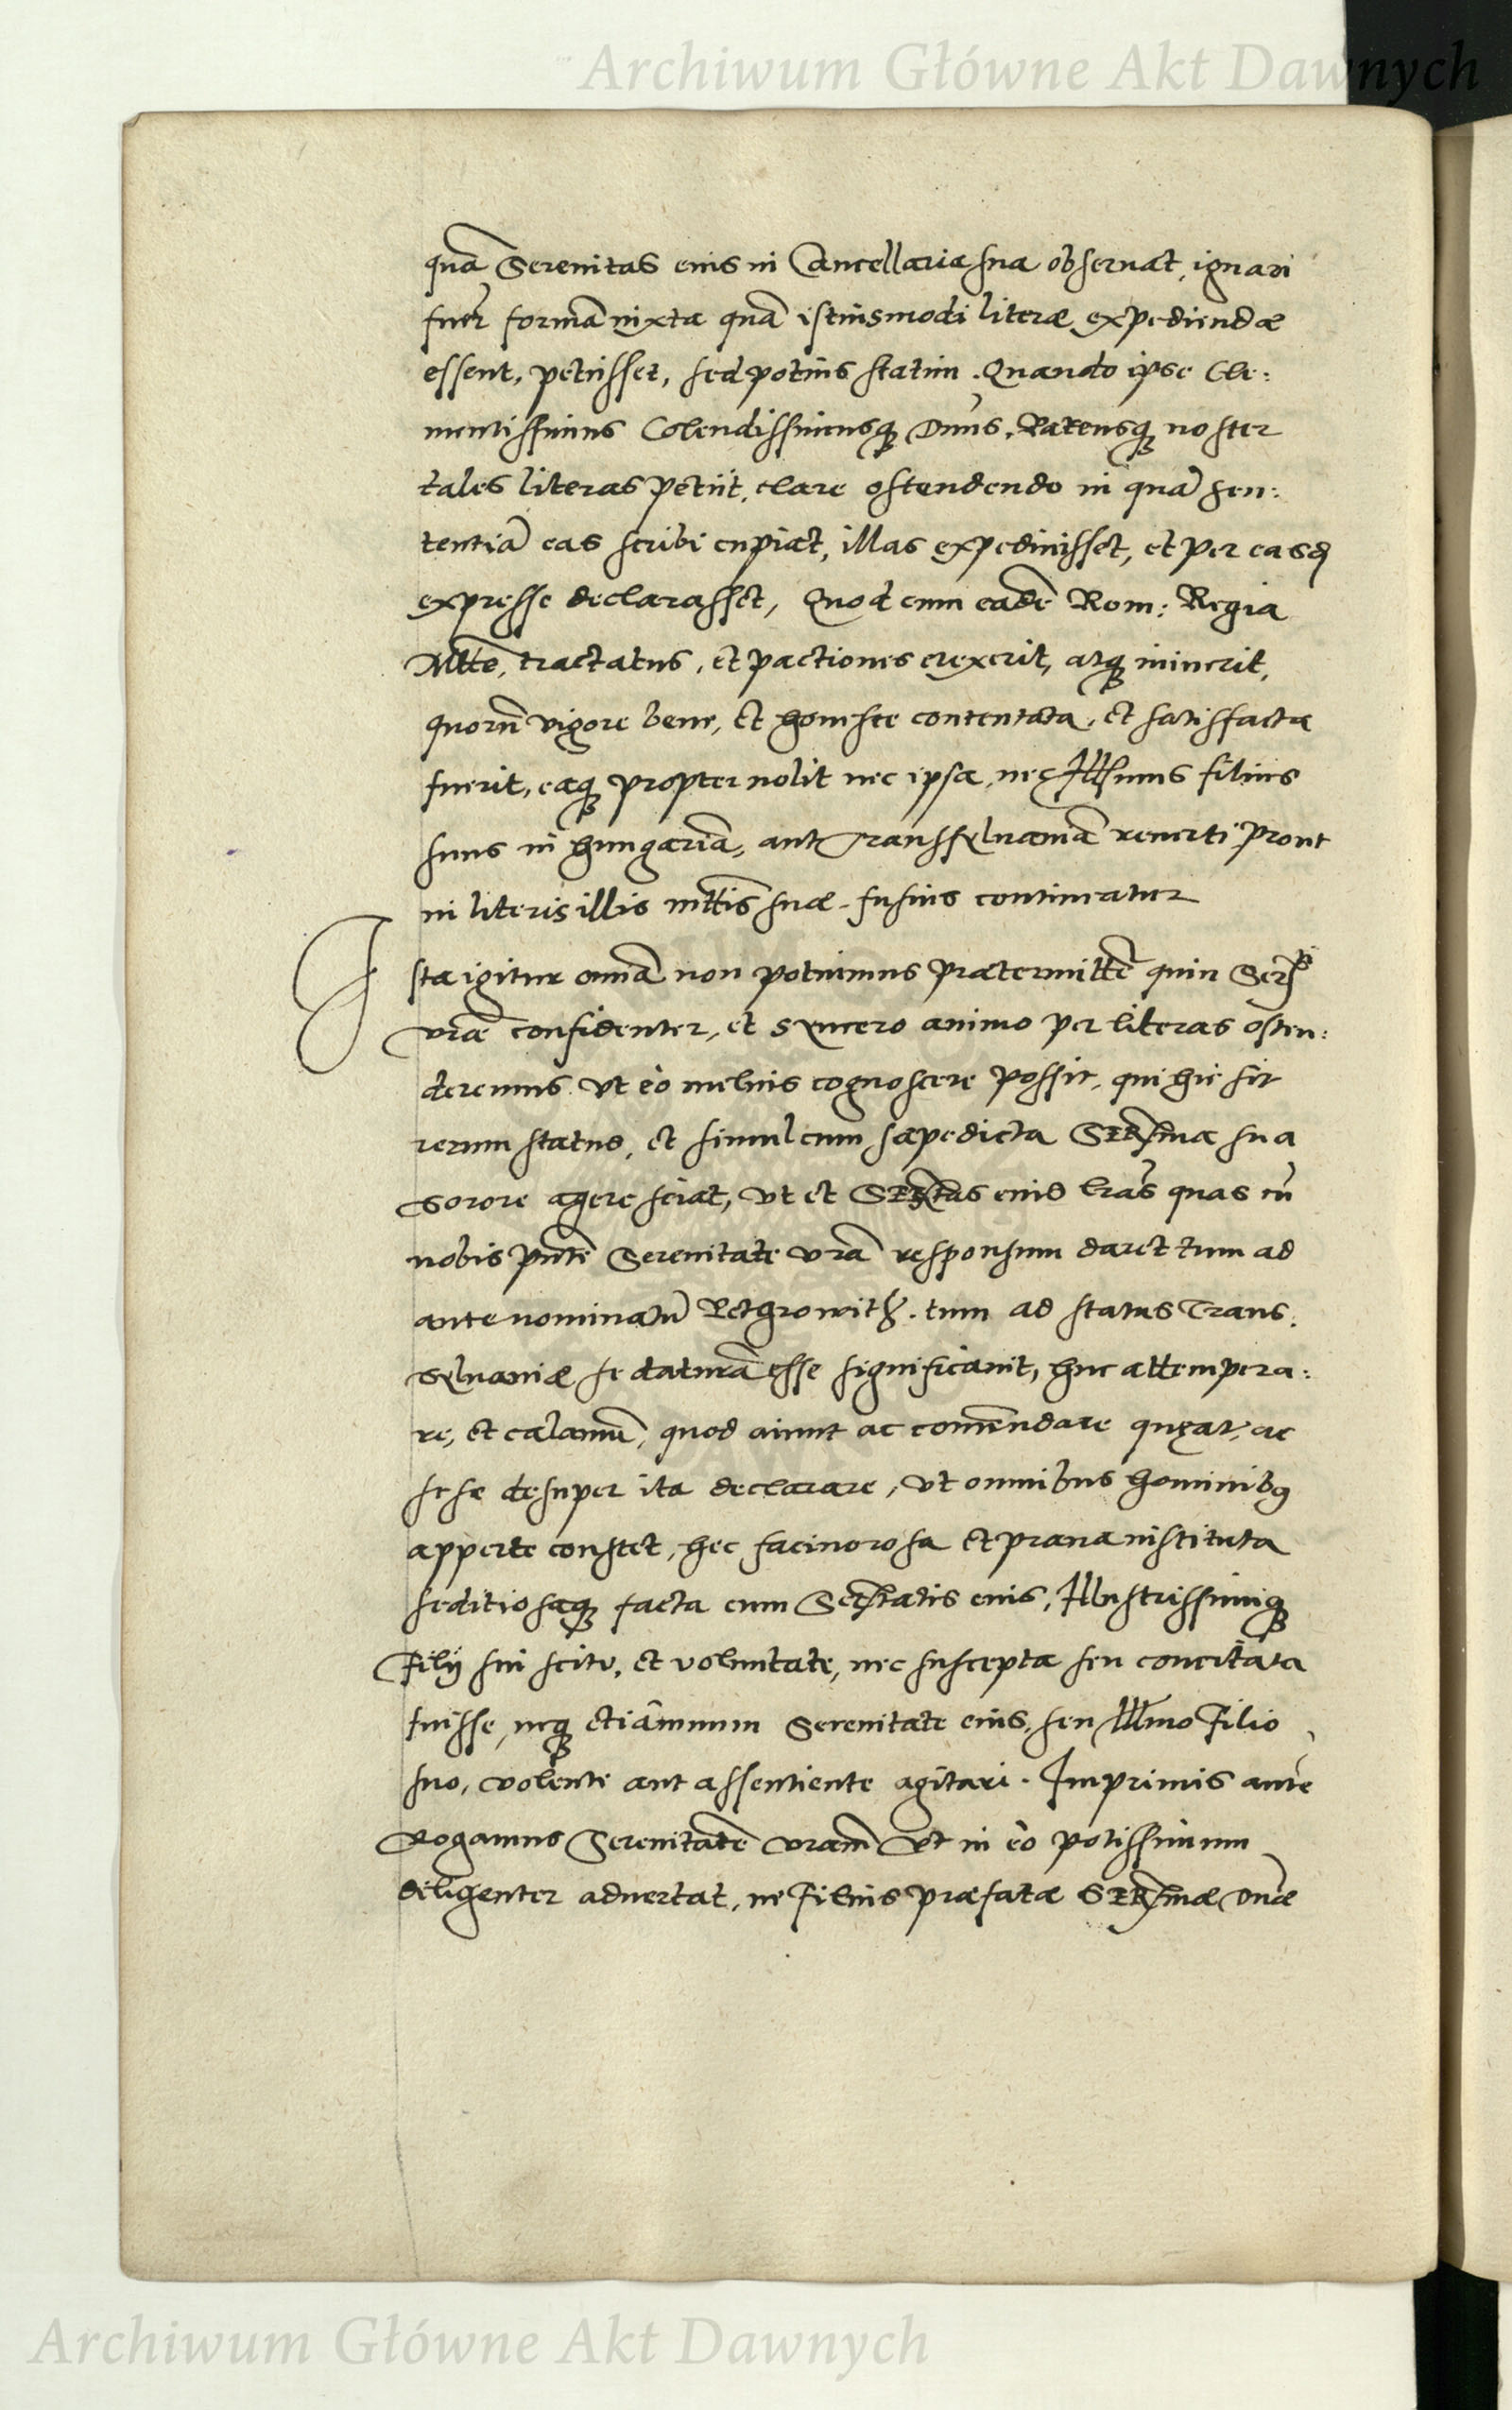 Archiwum Główne Akt Dawnych
quã Serenitas eius in Cancellaria sua obseruat, ignari
fuer̃ formã iuxta quã istiusmodi literæ expediendæ
essent, petiisset, sed potius statim. Quando ipse Cle:
mentissimus Colendissimusq; Dñus, Parensq; noster
tales literas petiit, clare ostendendo in quã sen:
tentiã eas scribi cupiat, illas expediuisset, et per easd
expresse declarasset, Quod cum eadẽ Rom: Regia
Mtte, tractatus, et pactiones erexerit, atq; iniuerit,
quorũ vigore bene, et honeste contentata, et satisfacta
fuerit, eaq; propter nolit nec ipsa, nec Illsmus filius
suus in Hungariã, aut Transsyluaniã reuerti, prout
in literis illis mttis suæ fusius contineatur
Ista igitur omnia non potuimus prætermittẽ quin Ser
vræ confidenter, et syncero animo per literas osten:
deremus. Vt eò melius cognoscere possit, qui hic sit
rerum status, et simul cum sæpedicta Sersma sua
sorore agere sciat, vt et Sertas eius lrãs quas cũ
nobis pñte Serenitate vrã responsum daret tum ad
antenominatũ Petrowith. tum ad status Trans:
syluaniæ se daturã esse significauit, huc attempera:
re, et calamũ, quod aiunt accomẽndare queat, ac
sese desuper ita declarare, vt omnibus hominibq
apperte constet, hec facinorosa et praua instituta
seditiosaq; facta cum Sertatis eius, Illustrissimiq;
Filij sui scitu, et voluntate, nec suscepta seu concitata
fuisse, neq; etiãmnum Serenitate eius, seu Illmo Filio
suo, volente aut assentiente agitari. Imprimis autẽ
Rogamus Serenitatẽ vram vt in eò potissimum
diligenter aduertat, ne Filius præfatæ Sersmæ Dnæ
Archiwum Główne Akt Dawnych